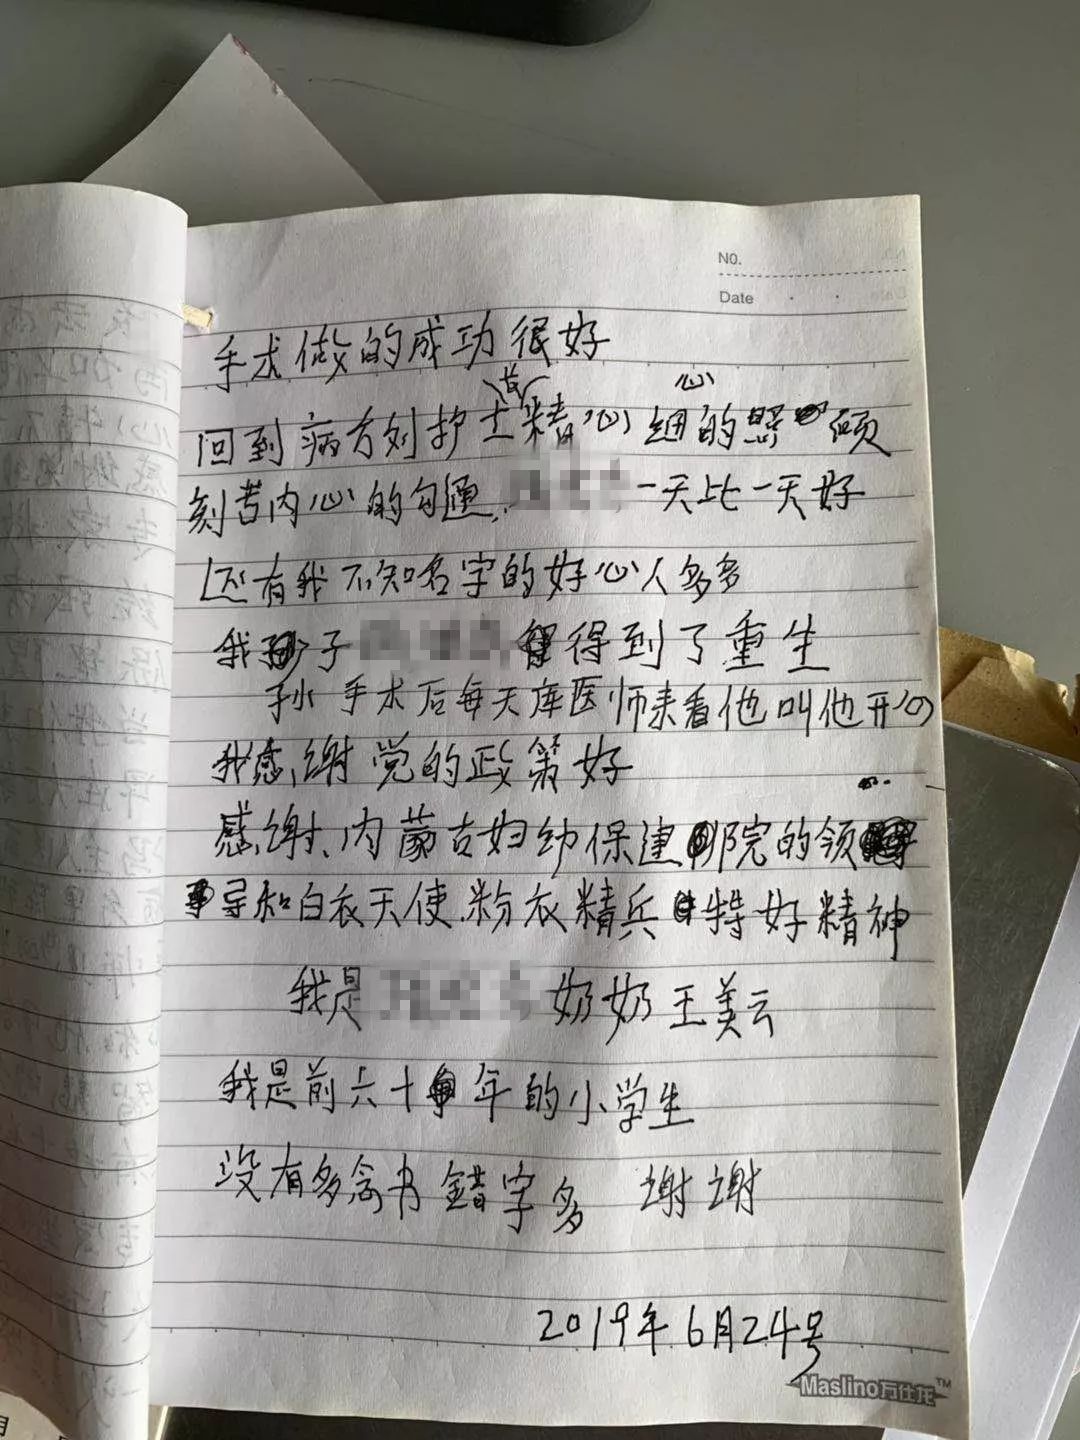 NO.
Date
手术做的成功很好
苦 心
回到病方刘护士精心细的照顾
刻苦内心的勾通. 一天比一天好
还有我不知名字的好心人多多
我孙子 得到了重生
手术后每天库医师来看他叫他开心
我感谢党的政策好
感谢、内蒙古妇幼保建院的领
导和白衣天使.粉衣精兵特好精神
我是 奶奶王美云
我是前六十年的小学生
没有多念书 錯字多 谢谢
2019年6月24号
Maslino万仕龙™